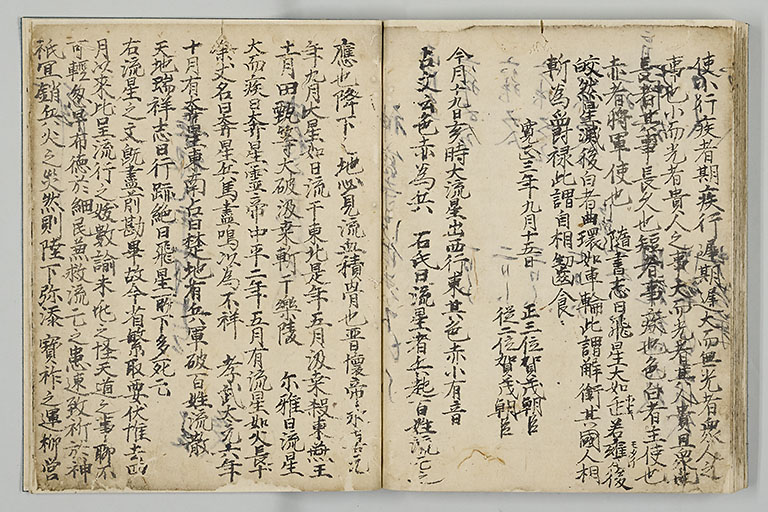 使小行疾者期疾行遅期遅大而無光者衆人之
事也小而光者貴人之事大而光者其人貴且衆也
長者其事長久也短者事疾也色白者主使也
赤者将軍使也 隋書志曰飛星大如缶若罐後
皎然星滅後白者曲環如車輪此謂解銜其國人相
斬為爵禄此謂自相齧食
寛正三年九月十五日 正三位賀茂朝臣
従二位賀茂朝臣
今月十九日亥時大流星出西行東其色赤小有音
占文云色赤為兵 石氏曰流星者兵起百姓流亡
應也降下之地必見流血積骨也晋懐帝永
年九月大星如日流于東北是年五月汲桑殺東燕王
十二月田甄等大破汲桑斬于樂陵 尓雅曰流星
大而疾曰奔星霊帝中平二年五月有流星如火長十
文名曰奔星兵馬盡鳴以為不祥 孝武大元六年
十月有奔星東南占曰楚地有兵軍破百姓流散
天地瑞祥志曰行跡絶曰飛星所下多死亡
右流星之文既盡前勘畢故今省繁取要伏惟去四
月以来比星流行之変數諭未
可軽忽早布徳於細民兼救流亡之患速致祈於神
祇宜銷兵火之災然則陛下弥添寶祚之運柳営